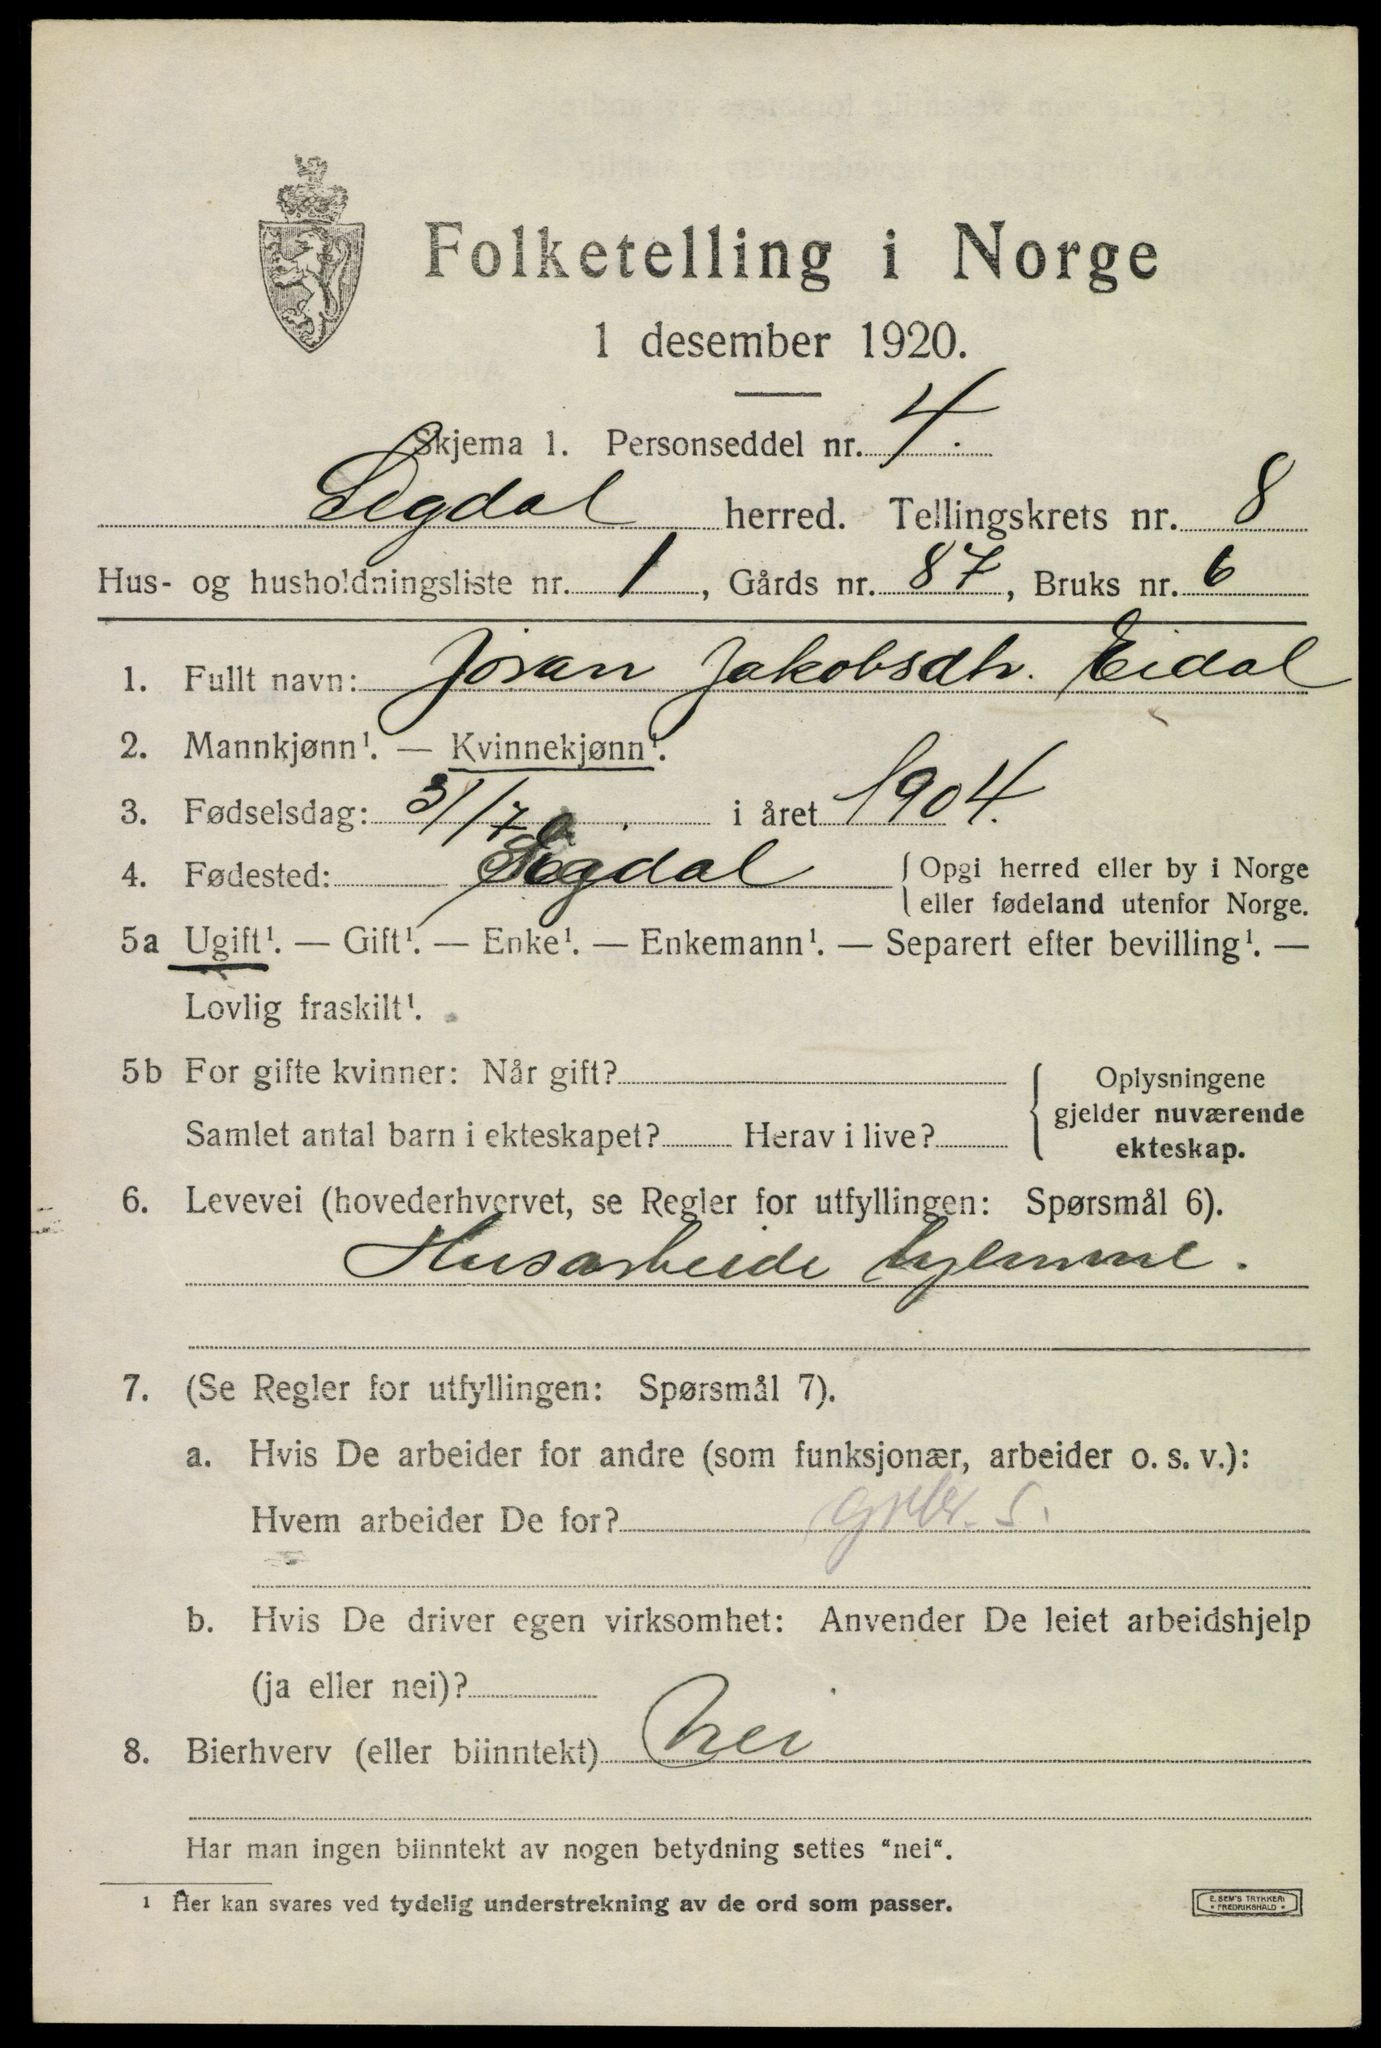 Folketelling i Norge
1 desember 1920.
Skjema 1. Personseddel nr. 4.
Sigdal herred. Tellingskrets nr. 8
Hus- og husholdningsliste nr. 1, Gårds nr. 87, Bruks nr. 6
1. Fullt navn: Jøran Jakobsdtr. Eidal
2. Mannkjønn¹. — Kvinnekjønn¹.
3. Fødselsdag: 3/7 i året 1904.
4. Fødested: Sigdal { Opgi herred eller by i Norge
eller fødeland utenfor Norge.
5a Ugift¹. — Gift¹. — Enke¹. — Enkemann¹. — Separert efter bevilling¹. —
Lovlig fraskilt¹.
5b For gifte kvinner: Når gift? { Oplysningene
gjelder nuværende
Samlet antal barn i ekteskapet? Herav i live? ekteskap.
6. Levevei (hovederhvervet, se Regler for utfyllingen: Spørsmål 6).
Husarbeide hjemme.
7. (Se Regler for utfyllingen: Spørsmål 7).
a. Hvis De arbeider for andre (som funksjonær, arbeider o. s. v.):
Hvem arbeider De for? grbr. s.
b. Hvis De driver egen virksomhet: Anvender De leiet arbeidshjelp
(ja eller nei)?
8. Bierhverv (eller biinntekt) Nei
Har man ingen biinntekt av nogen betydning settes "nei".
¹ Her kan svares ved tydelig understrekning av de ord som passer.
E. SEM'S TRYKKERI
* FREDRIKSHALD *